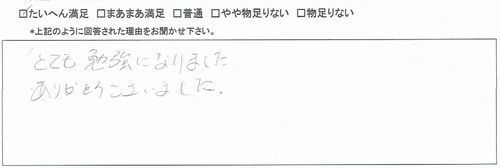 ☑たいへん満足 □まあまあ満足 □普通 □やや物足りない □物足りない
*上記のように回答された理由をお聞かせ下さい。
とても勉強になりました
ありがとうございました.